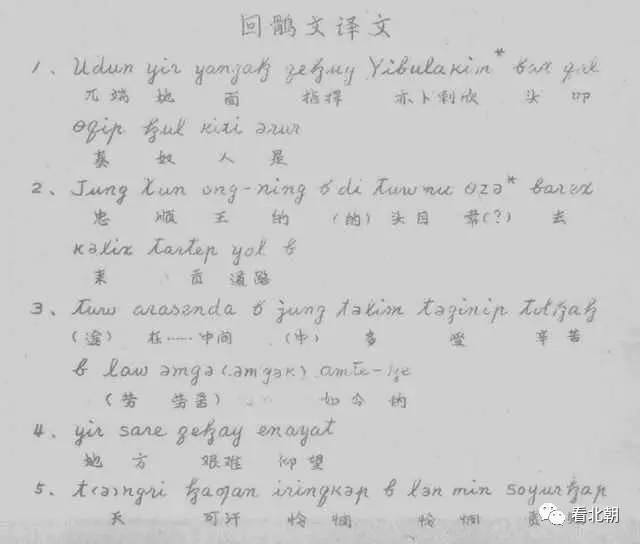 回鹘文译文
1、Udun yir yanzaⱪ zeⱨmy Yibulakim* bax qal
兀端 地 面 指挥 亦卜剌欣 头 叩
ɵqip ⱪul kixi ərur
莫 奴 人 是
2、Jung xun ong-ning б di tuwnu ɵzə* barex
忠 顺 王 的 (的) 头目 (?) 去
kəlix tartep yol б
来 贡 道路
3、tuw arasenda б jung təlim təginip totⱪaⱪ
(途) 在……中间 (中) 多 受 辛苦
б law əmgə (əmgək) amte-
(劳 劳番) 如今的
4、yir sare zeⱨay enayat
地 方 艰难 仰望
5、t(ə)ngri ⱪaƣan irinqkəp б lən min soyurⱪap
天 可汗 怜悯 怜悯
看北朝